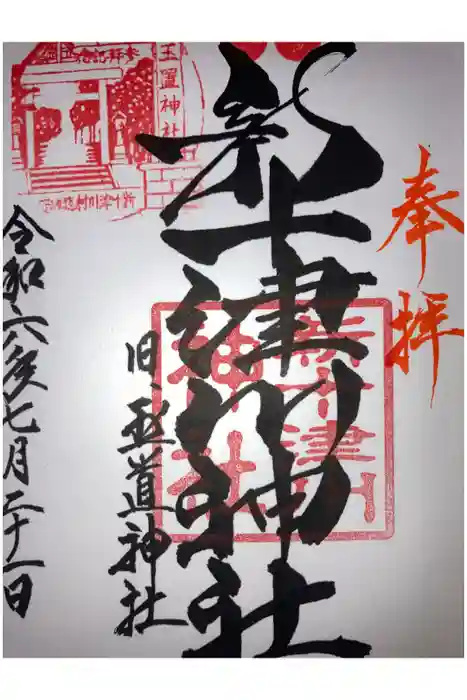 奉拝
新十津川神社
新十津川神社
旧 道神社
玉置神社
令和六年七月二十一日